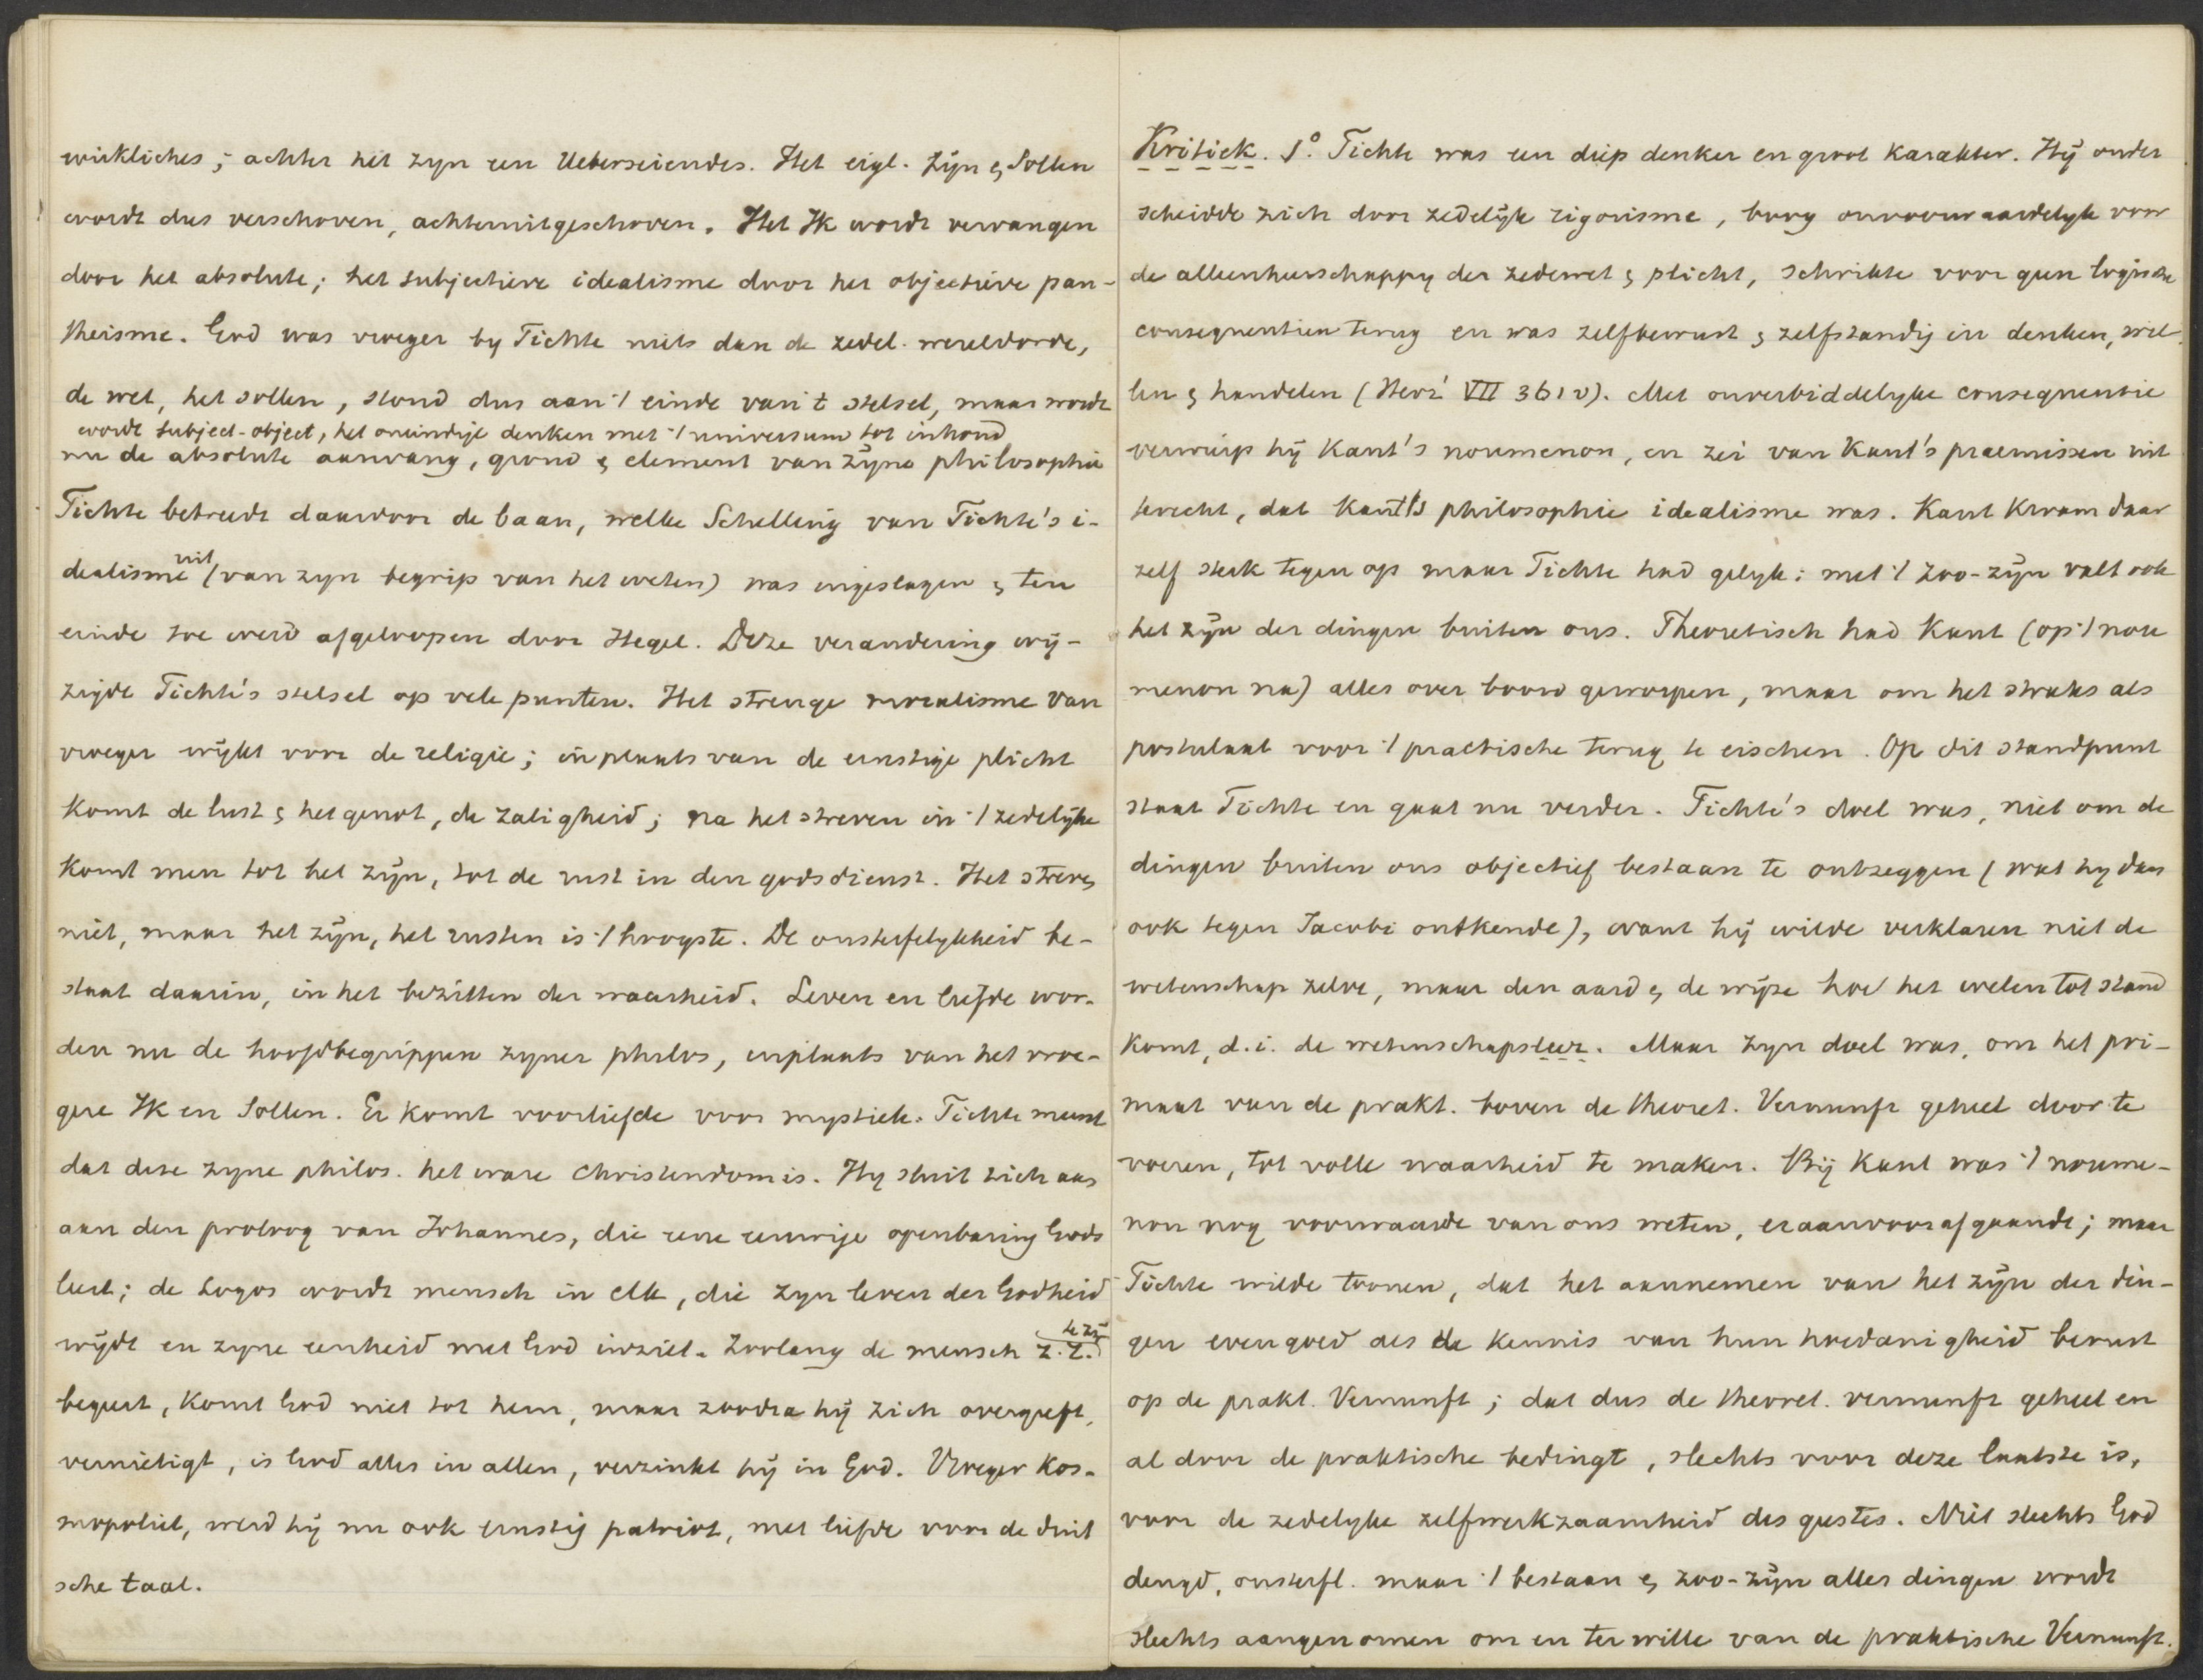 wirkliches; achter het zyn een Ueberseiendes. Het eigl. Zijn & Sollen
wordt dus verschoven, achteruitgeschoven. Het Ik wordt vervangen
door het absolute; het subjectieve idealisme door het objectieve pan-
theisme. God was vroeger by Fichte niets dan de zedel. wereldorde,
de wet, het sollen, stond dus aan 't einde van 't stelsel, maar wordt
wordt subject-object, het oneindige denken met 't universum tot inhoud
nu de absolute aanvang, grond & element van zijne philosophie
Fichte betreedt daardoor de baan, welke Schelling van Fichte's i-
uit
dealisme (van zyn begrip van het weten) was ingeslagen & ten
einde toe werd afgeloopen door Hegel. Deze verandering wij-
zigde Fichte's stelsel op vele punten. Het strenge moralisme van
vroeger wijkt voor de religie; in plaats van de ernstige plicht
komt de lust & het genot, de zaligheid; na het streven in 't zedelijke
komt men tot het zijn, tot de rust in den godsdienst. Het streven
niet, maar het zijn, het rusten is 't hoogste. De onsterfelykheid be-
staat daarin, in het bezitten der waarheid. Leven en liefde wor-
den nu de hoofdbegrippen zyner philos, inplaats van het vroe-
gere Ik en Sollen. Er komt voorliefde voor mystiek. Fichte meent
dat deze zyne philos. het ware Christendom is. Hy sluit zich aan
aan den proloog van Johannes, die eene eeuwige openbaring Gods
leert; de Logos wordt mensch in elk, die zyn leven der Godheid
wijdt en zyne eenheid met God inziet. Zoolang de mensch z.z.
te zijn
begeert, komt God niet tot hem, maar zoodra hij zich overgeeft,
vernietigt, is God alles in allen, verzinkt hij in God. Vroeger kos-
mopoliet, werd hij nu ook ernstig patriot, met liefde voor de duit
sche taal.
Kritiek. 1°. Fichte was een diep denker en groot karakter. Hij onder
scheidde zich door zedelijk rigorisme, boog onvoorwaardelyk voor
de alleenheerschappy der zedewet & plicht, schrikte voor geen logische
consequentien terug en was zelfbewust & zelfstandig in denken, wil-
len & handelen (Herz' VII 361v). Met onverbiddelyke consequentie
verwierp hij Kant's noumenon, en zei van Kant's praemissen uit
terecht, dat Kant's philosophie idealisme was. Kant kwam daar
zelf sterk tegen op maar Fichte had gelyk; met 't zoo-zijn valt ook
het zijn der dingen buiten ons. Theoretisch had Kant (op 't nou
menon na) alles over boord geworpen, maar om het straks als
postulaat voor 't practische terug te eischen. Op dit standpunt
staat Fichte en gaat nu verder. Fichte's doel was, niet om de
dingen buiten ons objectief bestaan te ontzeggen (wat hy dan
ook tegen Jacobi ontkende), want hij wilde verklaren niet de
wetenschap zelve, maar den aard & de wijze hoe het weten tot stand
komt, d.i. de wetenschapsleer. Maar zyn doel was, om het pri-
maat van de prakt. boven de theoret. Vernunft geheel door te
voeren, tot volle waarheid te maken. Bij Kant was 't noume-
non nog voorwaarde van ons weten, eraanvoorafgaande; maar
Fichte wilde toonen, dat het aannemen van het zijn der din-
gen evengoed als de kennis van hun hoedanigheid berust
op de prakt. Vernunft; dat dus de theoret. vernunft geheel en
al door de praktische bedingt, slechts voor deze laatste is,
voor de zedelyke zelfwerkzaamheid des geestes. Niet slechts God
deugd, onsterfl. maar 't bestaan & zoo-zijn aller dingen wordt
slechts aangenomen om en ter wille van de praktische Vernunft.